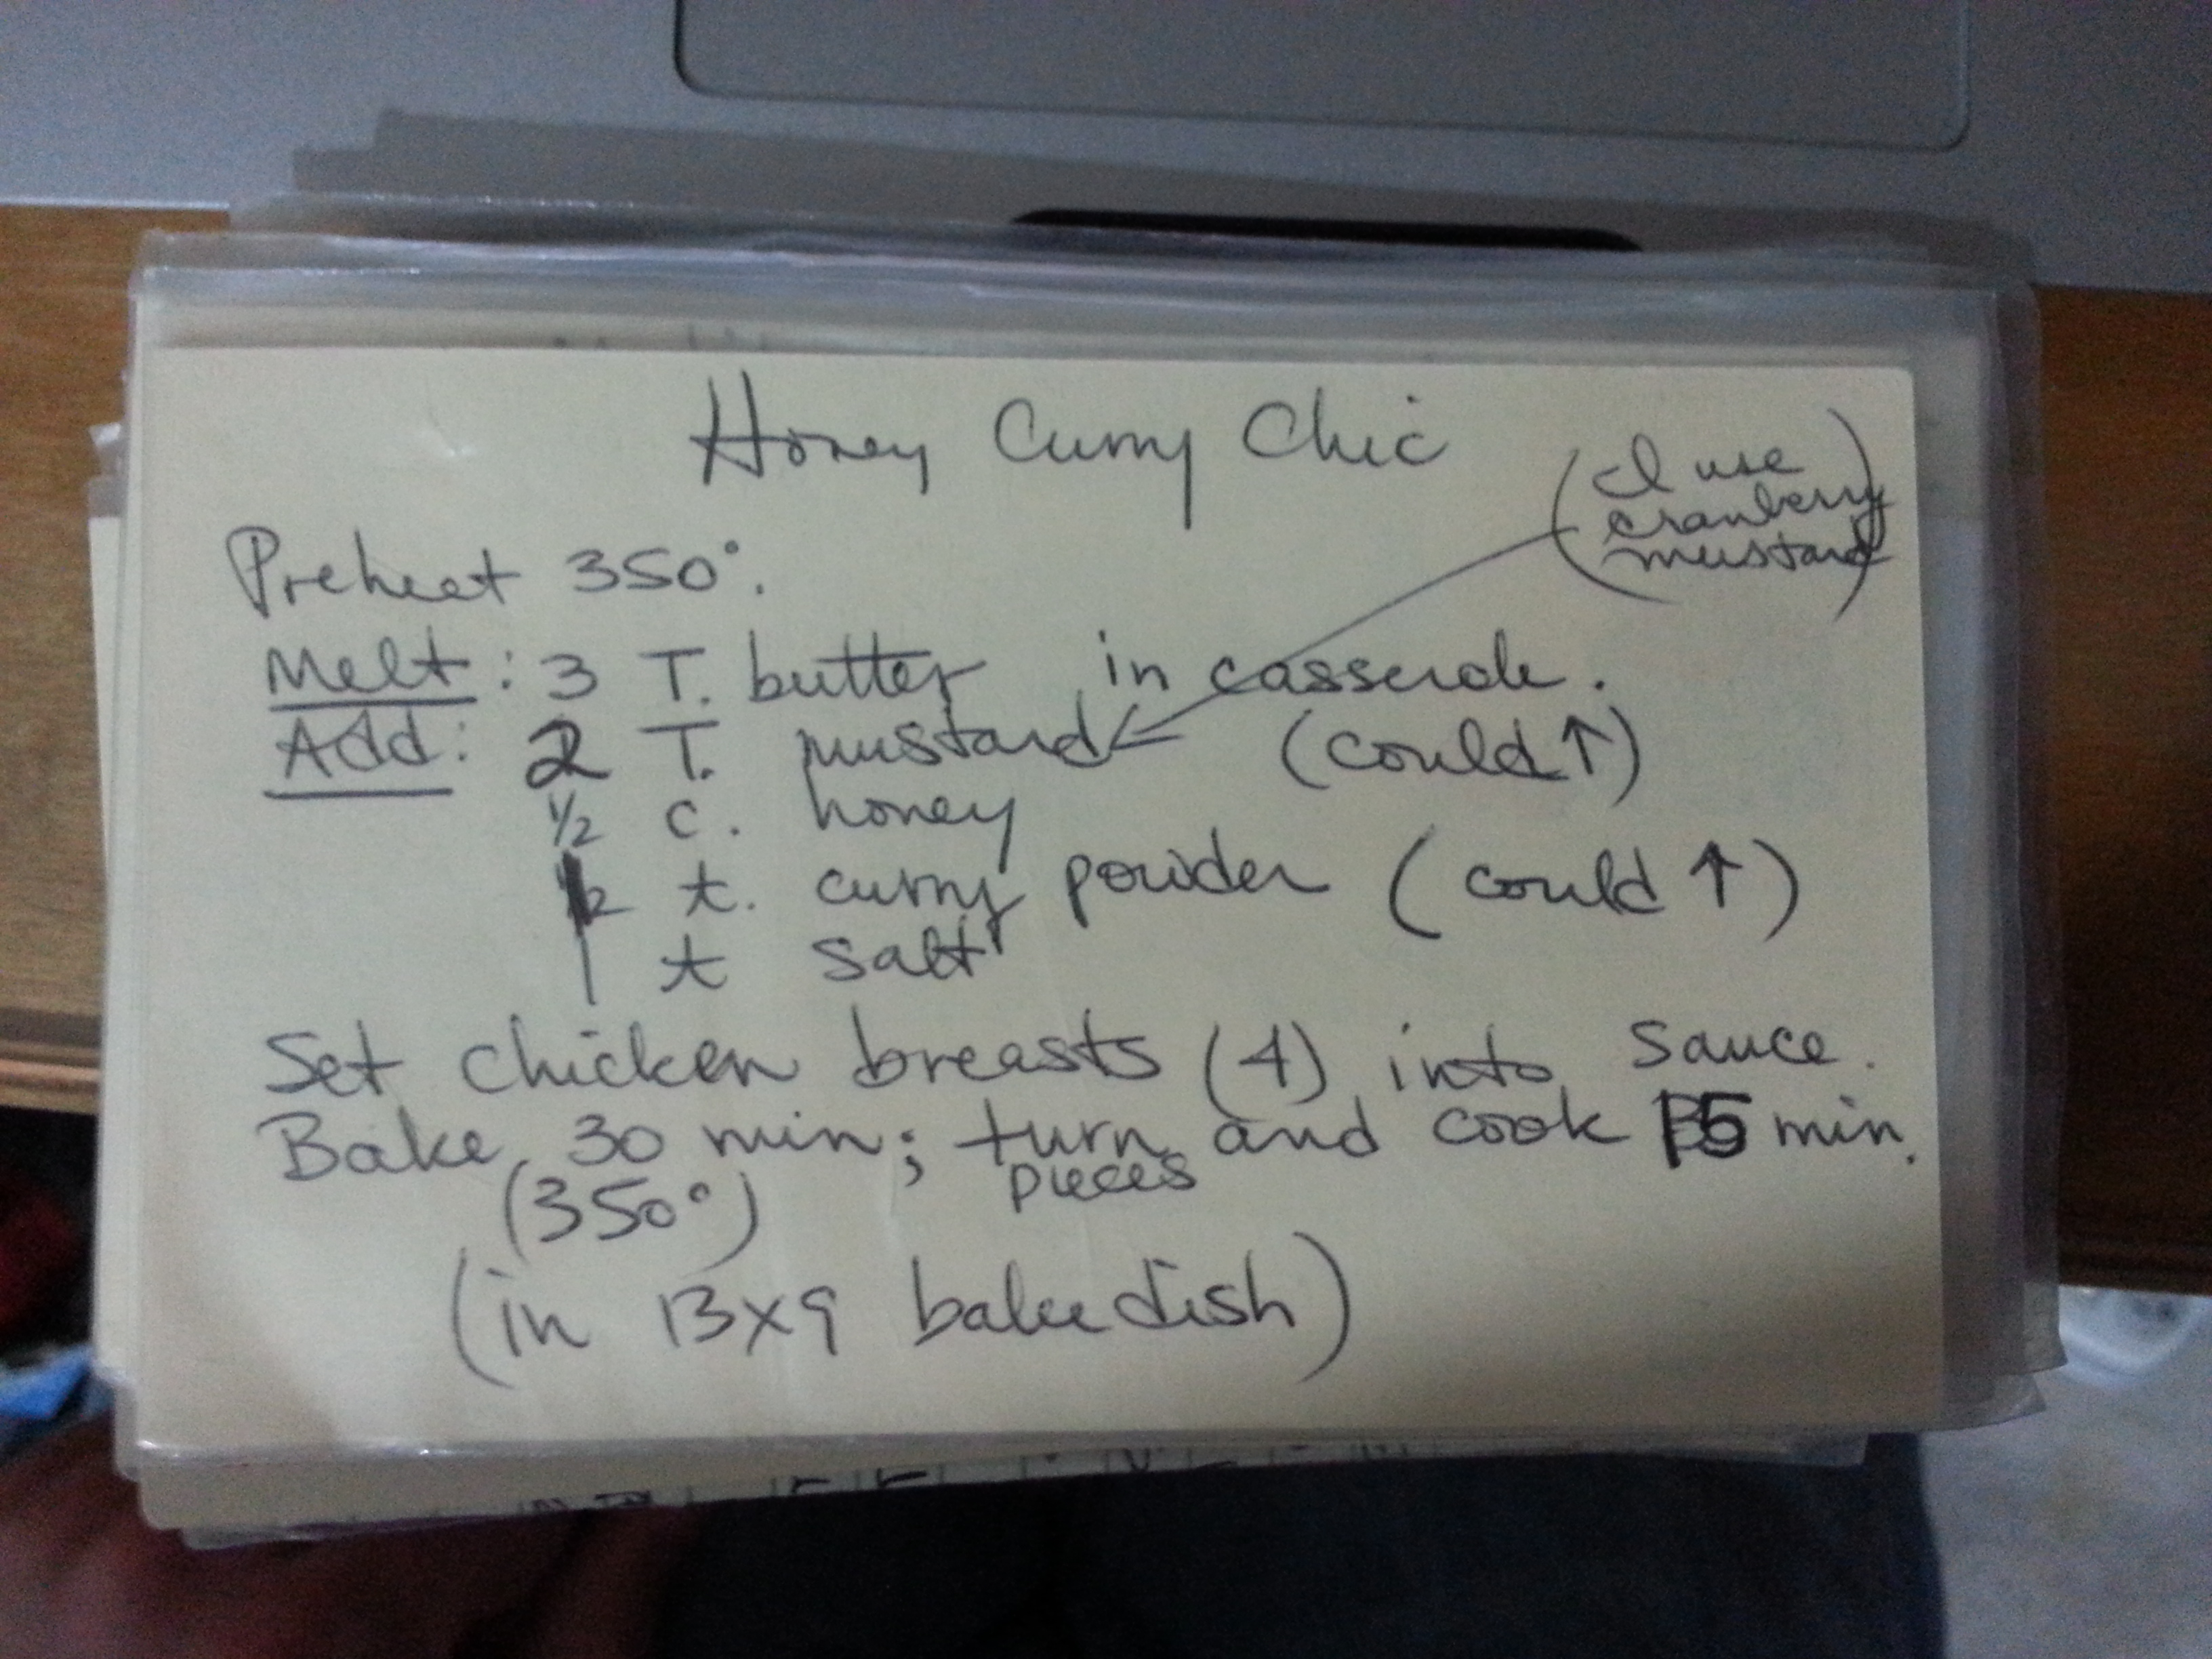 Honey Curry Chic
(I use
cranberry
mustard)
Preheat 350°.
Melt: 3 T. butter in casserole.
Add: 2 T. mustard (could ↑)
1/2 c. honey
t. curry powder (could ↑)
1 t salt
Set chicken breasts (4) into sauce.
Bake 30 min; turn and cook 15 min.
(350°) pieces
(in 13x9 bake dish)